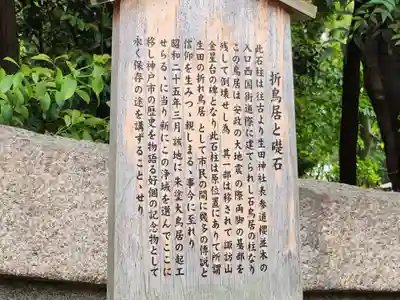 折鳥居と礎石
此石柱は往古より生田神社表参道櫻並木の
入口西国街道際に建てられし石鳥居の柱なり
この鳥居は安政の大地震の際両脚の基部を
残して倒壊せし為其一部は移されて諏訪山
金星台の碑となり此石柱は原位置にありて所謂
生田の折れ鳥居として市民の間に幾多の傳説と
信仰を生みつゝ親しまる、事今に至れり
昭和二十五年三月該地に朱塗大鳥居の起工
せらる、に当り新にこの浄域を選んでここに
移し神戸市の歴史を物語る好個の記念物として
永く保存の途を講ずること、せり